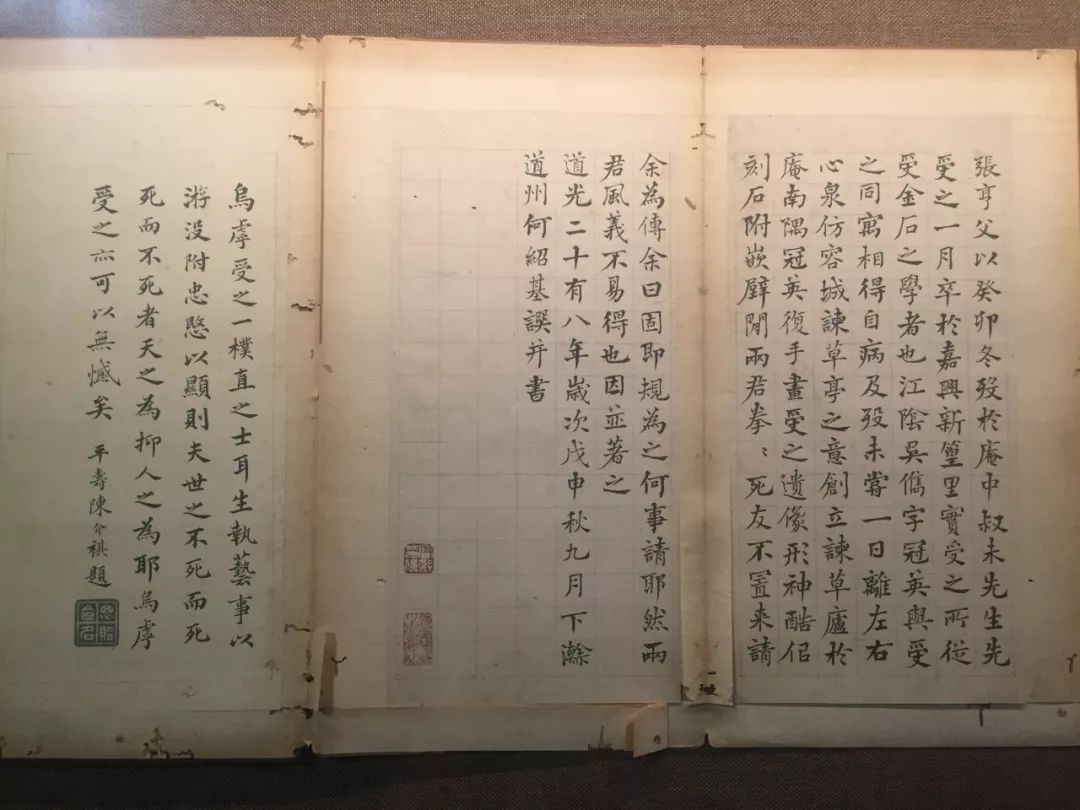 張亨父以癸卯冬歿於庵中叔未先生先
受之一月卒於嘉興新篁里實受之所從
受金石之學者也江陰吳儁字冠英與受
之同寓相得自病及歿未嘗一日離左右
心泉仿容城諫草亭之意創立諫草廬於
庵南隅冠英復手畫受之遺像形神酷佀
刻石附嵌壁閒兩君拳〻死友不置來請
余為傳余曰固即規為之何事請耶然兩
君風義不易得也因並著之
道光二十有八年歲次戊申秋九月下澣
道州何紹基譔并書
烏虖受之一樸直之士耳生執藝事以
游没附忠愍以顯則夫世之不死而死
死而不死者天之為抑人之為耶烏虖
受之亦可以無憾矣 平壽陳介祺題